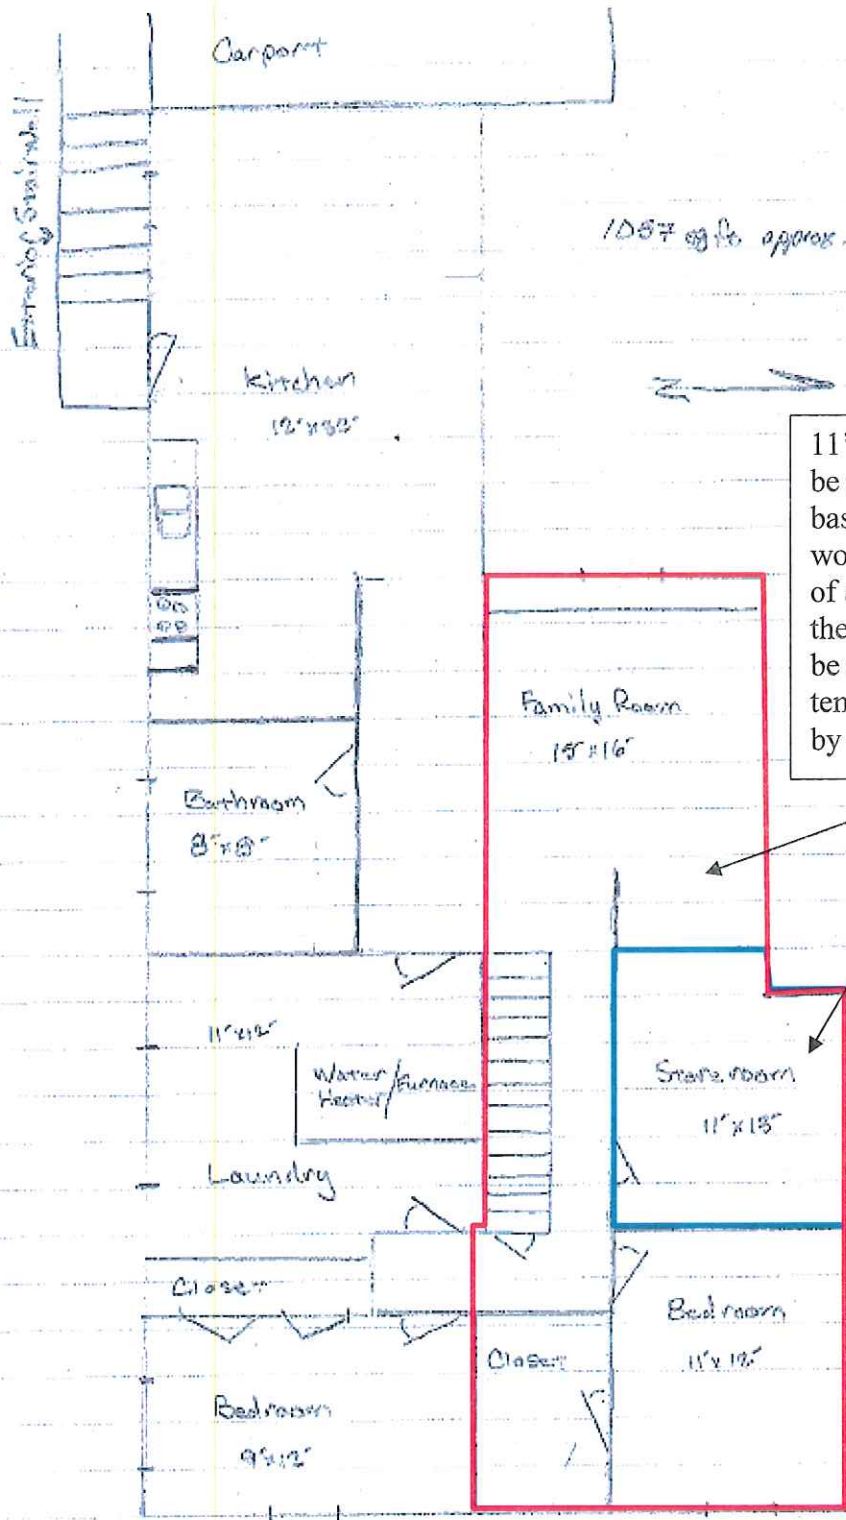 Carport
Exterior Stairwell
1057 sq ft approx.
Kitchen
N
11'
be
bas
wo
of
the
be
ten
by
Family Room
15' x 16'
Bathroom
8' x 8'
11' x 12'
Water Heater / Furnace
Laundry
Store room
11' x 13'
Closet
Bedroom
11' x 12'
Closet
Bedroom
9' x 12'